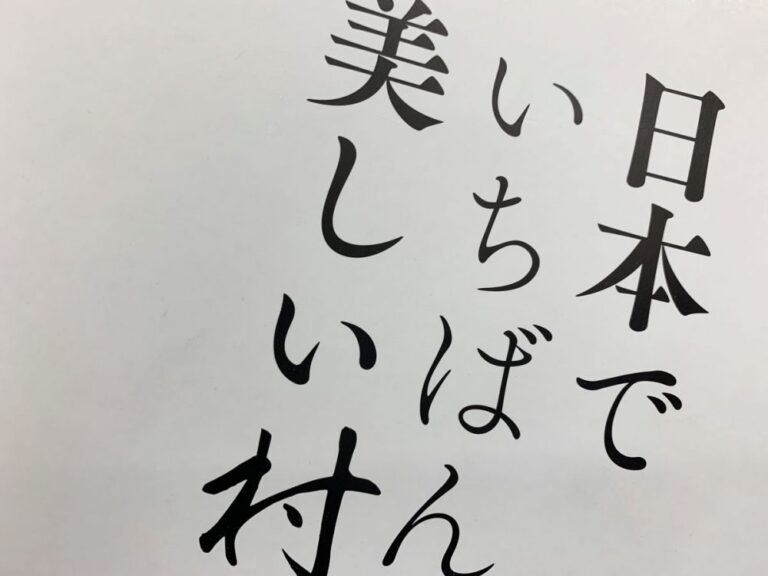 日本で
いちばん
美しい村